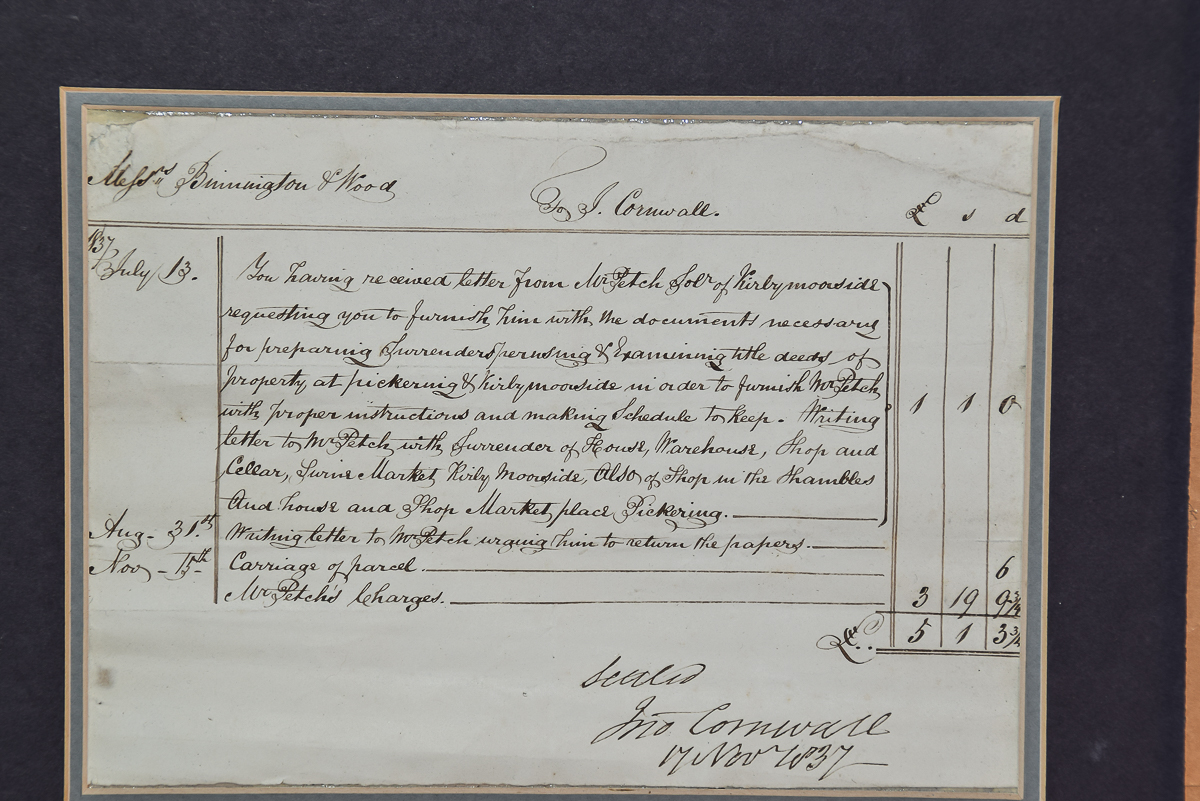 Messrs Binnington & Wood
To J. Cornwall. £ s d
1837
July 13. You having received letter from Mr Petch Solr of Kirbymoorside
requesting you to furnish him with the documents necessary
for preparing Surrenders perusing & Examining title deeds of
property at pickering & Kirbymoorside in order to furnish Mr Petch
with proper instructions and making Schedule to keep. Writing 1 1 0
letter to Mr Petch with Surrender of House, Warehouse, Shop and
Cellar, Swine Market Kirby Moorside, Also of Shop in the Shambles
And house and Shop Market place Pickering.
Aug - 31.st Writing letter to Mr Petch urging him to return the papers.
Nov - 15th Carriage of parcel. 6
Mr Petch's Charges. 3 19 9¾
£ 5 1 3¾
Settled
Jno Cornwall
17 Novr 1837